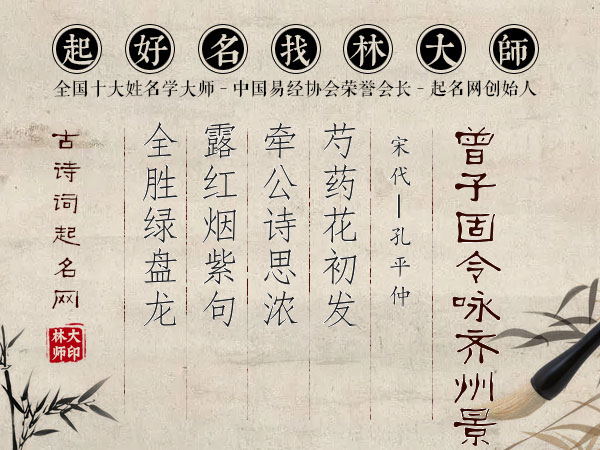 起好名找林大師
全国十大姓名学大师 - 中国易经协会荣誉会长 - 起名网创始人
曾子固令咏齐州景
宋代—孔平仲
芍药花初发
牵公诗思浓
露红烟紫句
全胜绿盘龙
古诗词起名网
大印
林师